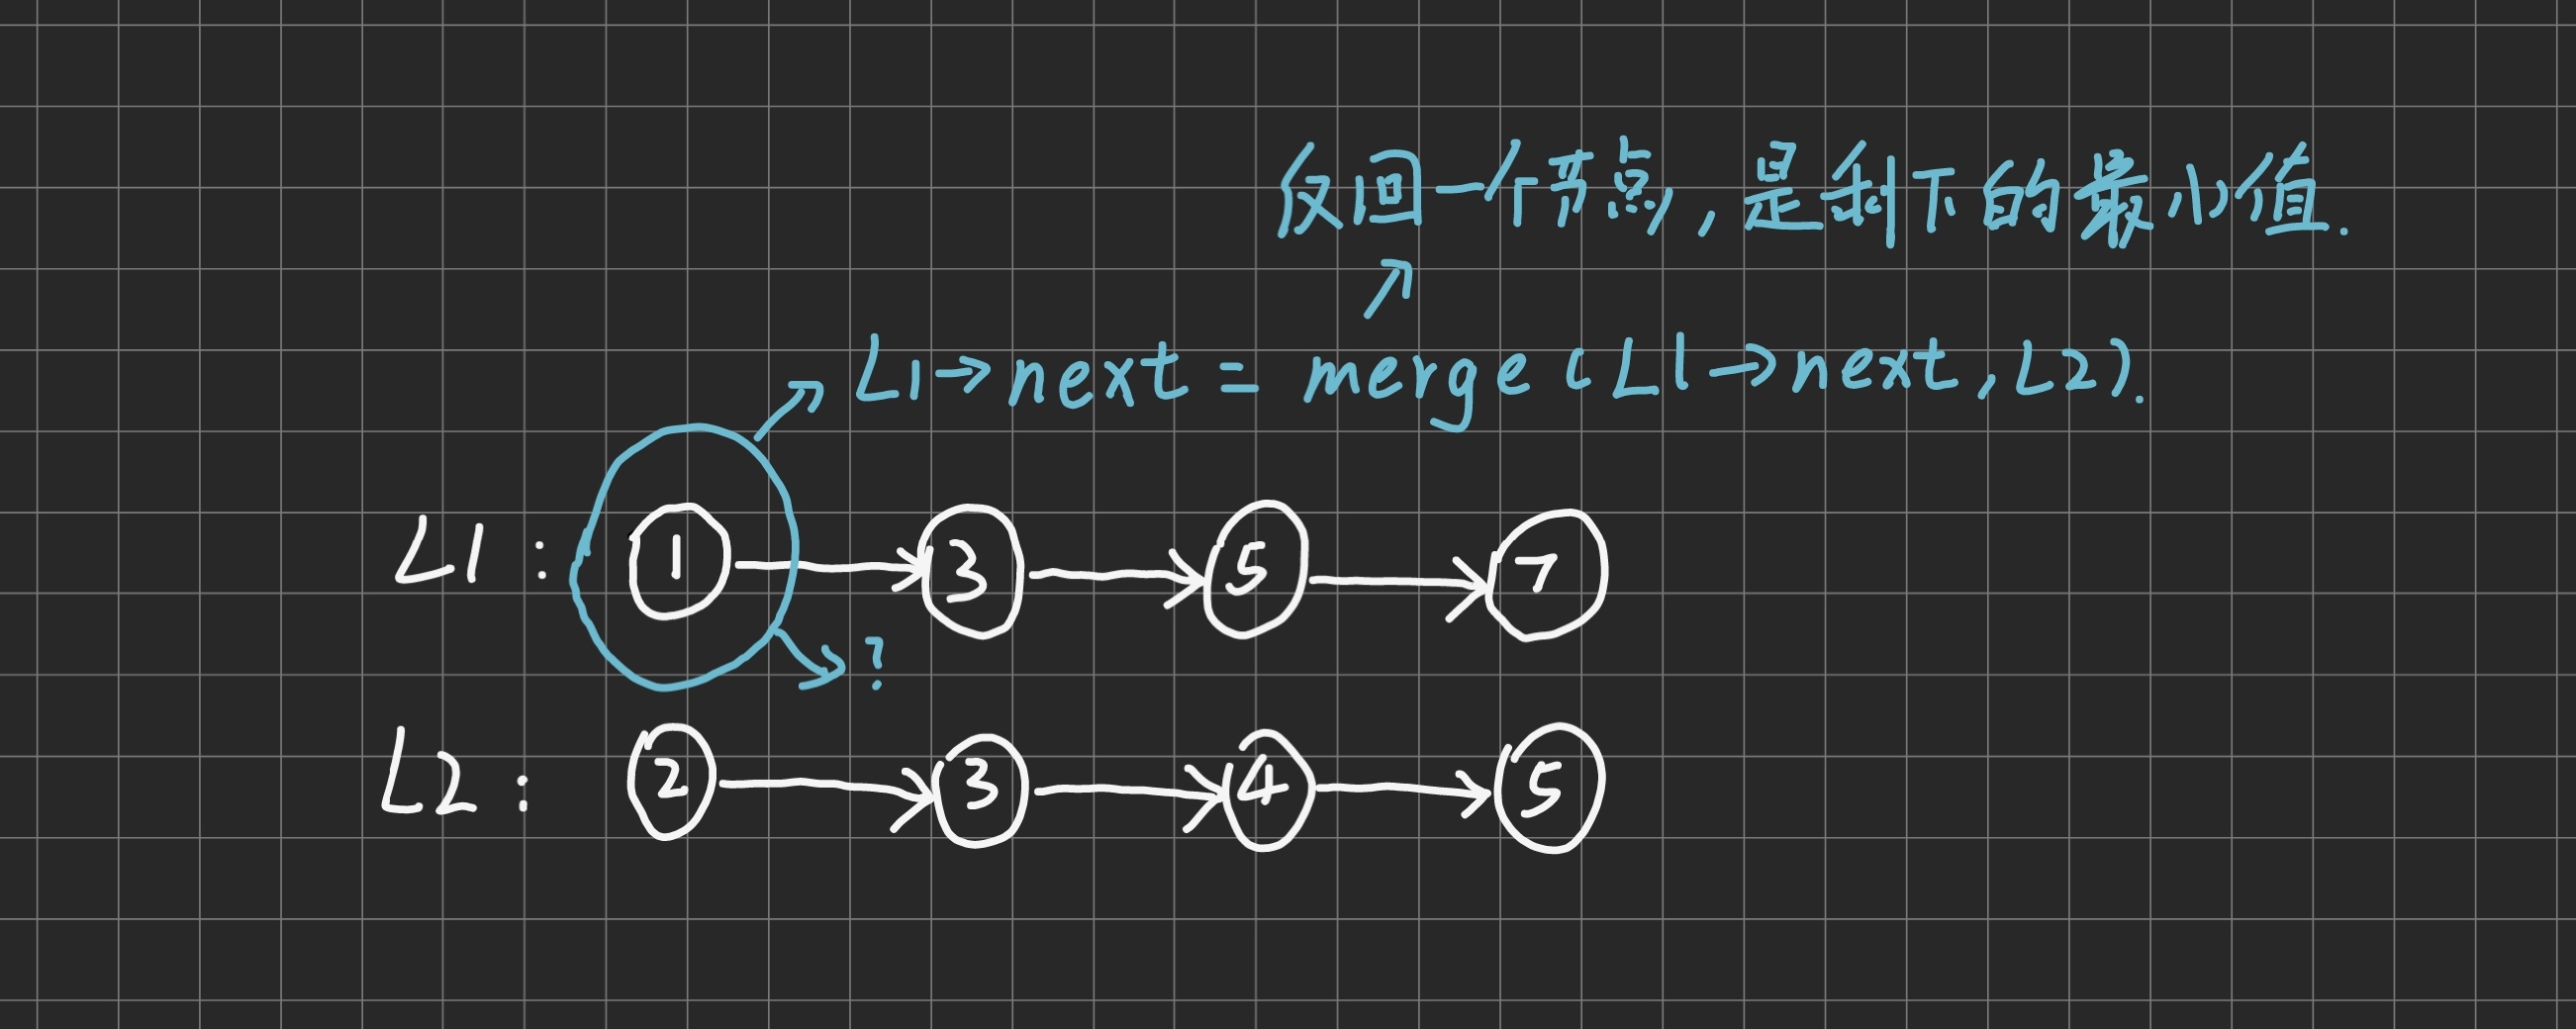 返回一个节点,是剩下的最小值.
L1→next = merge(L1→next,L2).
L1: 1 3 5 7
?
L2: 2 3 4 5